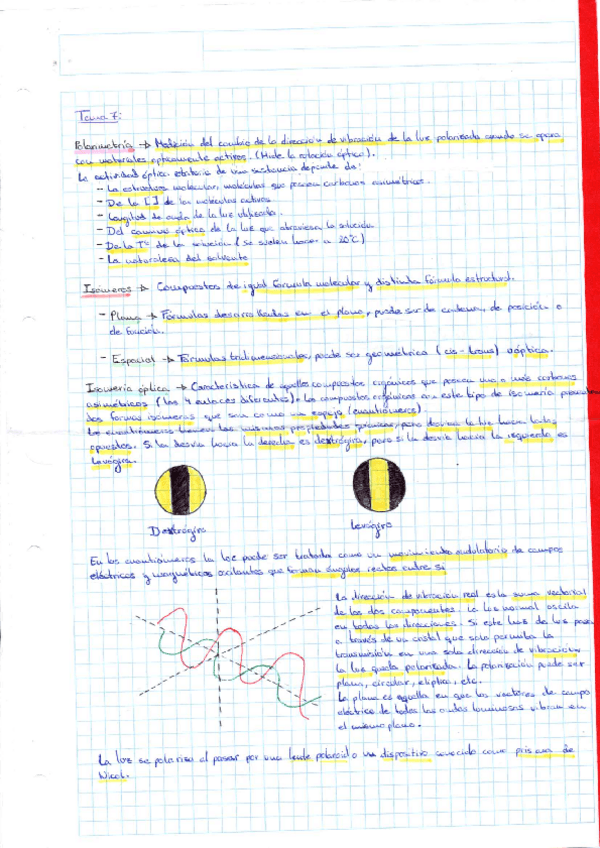 Tema 7:
Polarimetría → Medición del cambio de la dirección de vibración de la luz polarizada cuando se opera
con materiales ópticamente activos. (Mide la rotación óptica).
La actividad óptica rotatoria de una sustancia depende de:
- La estructura molecular, moléculas que posean carbonos asimétricos.
- De la [ ] de las moléculas activas
- Longitud de onda de la luz utilizada.
- Del camino óptico de la luz que atraviesa la solución
- De la Tª de la solución (se suelen hacer a 20ºC)
- La naturaleza del solvente
Isómeros → Compuestos de igual fórmula molecular y distinta fórmula estructural.
- Plana → Fórmulas desarrolladas en el plano, puede ser de cadena, de posición o
de función.
- Espacial → Fórmulas tridimensionales, puede ser geométrica (cis-trans) u óptica.
Isomería óptica → Característica de aquellos compuestos orgánicos que posean uno o más carbonos
asimétricos (los 4 enlaces diferentes). Los compuestos orgánicos con este tipo de isomería
dos formas isómeras que son como un espejo (enantiómeros)
Los enantiómeros tienen las mismas propiedades físicas, pero desvían la luz hacia lados
opuestos. Si la desvía hacia la derecha es dextrógira, pero si la desvía hacia la izquierda es
levógira.
Dextrógira
Levógira
En los enantiómeros la luz puede ser tratada como un movimiento ondulatorio de campos
eléctricos y magnéticos oscilantes que forman ángulos rectos entre sí
La dirección de vibración real es la suma vectorial
de los dos componentes. La luz normal oscila
en todas las direcciones. Si este haz de luz pasa
a través de un cristal que solo permita la
transmisión en una sola dirección de vibración
la luz queda polarizada. La polarización puede ser
plana, circular, elíptica, etc.
La plana es aquella en que los vectores de campo
eléctrico de todas las ondas luminosas vibran en
el mismo plano.
La luz se polariza al pasar por una lente polaroid o un dispositivo conocido como prisma de
Nicol.